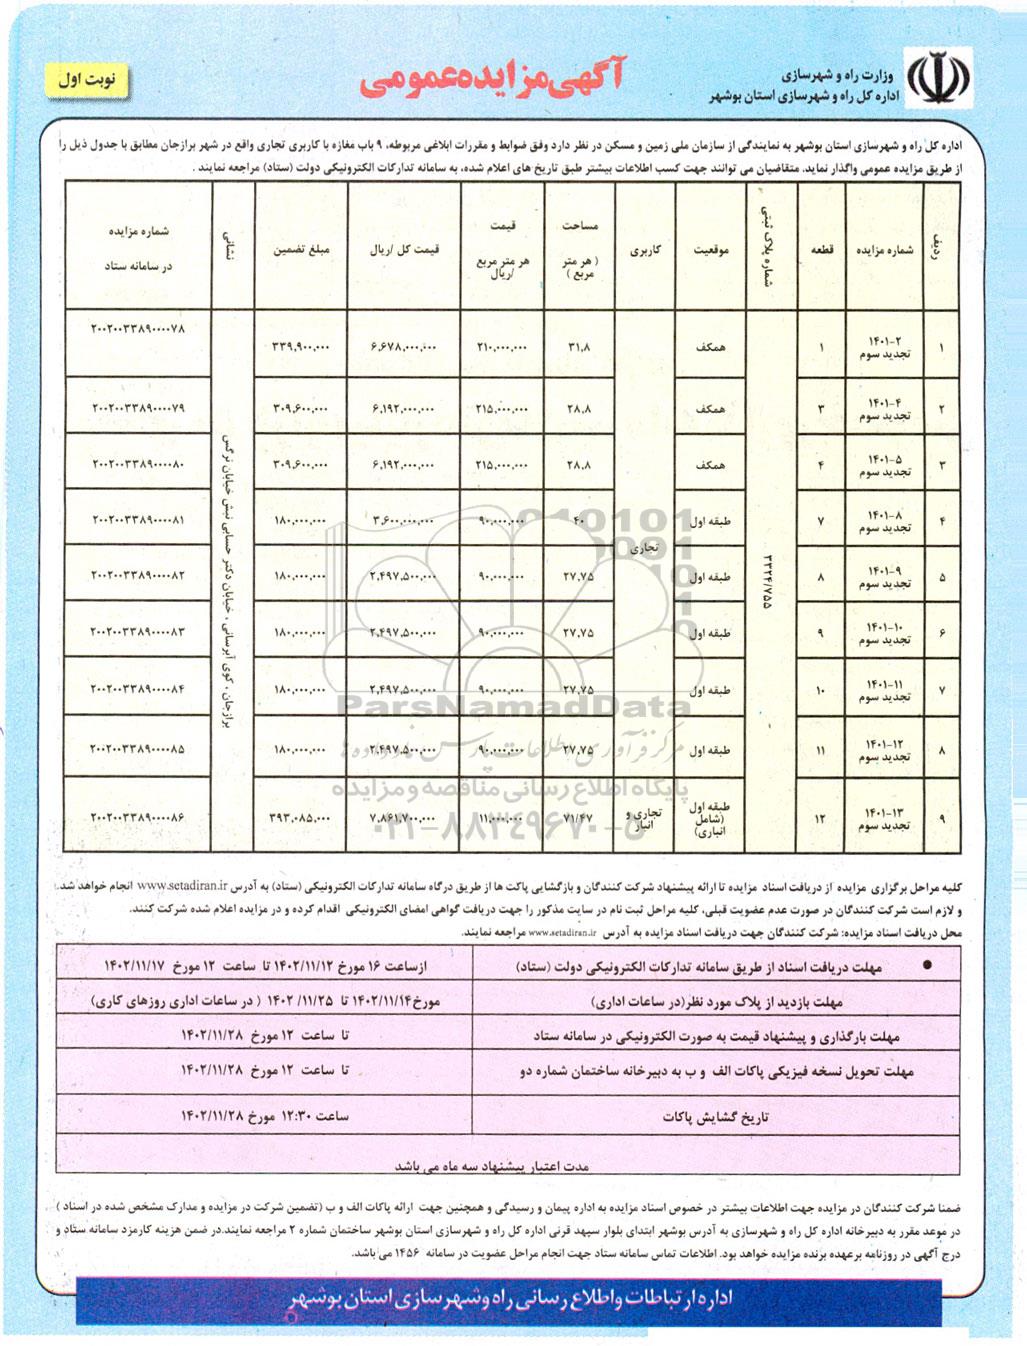 وزارت راه و شهرسازی
اداره کل راه و شهرسازی استان بوشهر
آگهی مزایده عمومی
نوبت اول
اداره کل راه و شهرسازی استان بوشهر به نمایندگی از سازمان ملی زمین و مسکن در نظر دارد وفق ضوابط و مقررات ابلاغی مربوطه، ۹ باب مغازه با کاربری تجاری واقع در شهر برازجان مطابق با جدول ذیل را
از طریق مزایده عمومی واگذار نماید. متقاضیان می توانند جهت کسب اطلاعات بیشتر طبق تاریخ های اعلام شده، به سامانه تدارکات الکترونیکی دولت (ستاد) مراجعه نمایند .
ردیف | شماره مزایده | قطعه | شماره پلاک ثبتی | موقعیت | کاربری | مساحت ( هر متر مربع ) | قیمت هر متر مربع /ریال | قیمت کل /ریال | مبلغ تضمین | نشانی | شماره مزایده در سامانه ستاد
۱ | ۱۴۰۱-۲ تجدید سوم | ۱ | ۳۳۲۴/۷۵۵ | همکف | تجاری | ۳۱.۸ | ۲۱۰,۰۰۰,۰۰۰ | ۶,۶۷۸,۰۰۰,۰۰۰ | ۳۳۹,۹۰۰,۰۰۰ | برازجان ، کوی آبرسانی ، خیابان دکتر حسابی نبش خیابان نرگس | ۲۰۰۲۰۰۳۳۸۹۰۰۰۰۷۸
۲ | ۱۴۰۱-۴ تجدید سوم | ۳ | همکف | ۲۸.۸ | ۲۱۵,۰۰۰,۰۰۰ | ۶,۱۹۲,۰۰۰,۰۰۰ | ۳۰۹,۶۰۰,۰۰۰ | ۲۰۰۲۰۰۳۳۸۹۰۰۰۰۷۹
۳ | ۱۴۰۱-۵ تجدید سوم | ۴ | همکف | ۲۸.۸ | ۲۱۵,۰۰۰,۰۰۰ | ۶,۱۹۲,۰۰۰,۰۰۰ | ۳۰۹,۶۰۰,۰۰۰ | ۲۰۰۲۰۰۳۳۸۹۰۰۰۰۸۰
۴ | ۱۴۰۱-۸ تجدید سوم | ۷ | طبقه اول | ۴۰ | ۹۰,۰۰۰,۰۰۰ | ۳,۶۰۰,۰۰۰,۰۰۰ | ۱۸۰,۰۰۰,۰۰۰ | ۲۰۰۲۰۰۳۳۸۹۰۰۰۰۸۱
۵ | ۱۴۰۱-۹ تجدید سوم | ۸ | طبقه اول | ۲۷.۷۵ | ۹۰,۰۰۰,۰۰۰ | ۲,۴۹۷,۵۰۰,۰۰۰ | ۱۸۰,۰۰۰,۰۰۰ | ۲۰۰۲۰۰۳۳۸۹۰۰۰۰۸۲
۶ | ۱۴۰۱-۱۰ تجدید سوم | ۹ | طبقه اول | ۲۷.۷۵ | ۹۰,۰۰۰,۰۰۰ | ۲,۴۹۷,۵۰۰,۰۰۰ | ۱۸۰,۰۰۰,۰۰۰ | ۲۰۰۲۰۰۳۳۸۹۰۰۰۰۸۳
۷ | ۱۴۰۱-۱۱ تجدید سوم | ۱۰ | طبقه اول | ۲۷.۷۵ | ۹۰,۰۰۰,۰۰۰ | ۲,۴۹۷,۵۰۰,۰۰۰ | ۱۸۰,۰۰۰,۰۰۰ | ۲۰۰۲۰۰۳۳۸۹۰۰۰۰۸۴
۸ | ۱۴۰۱-۱۲ تجدید سوم | ۱۱ | طبقه اول | ۲۷.۷۵ | ۹۰,۰۰۰,۰۰۰ | ۲,۴۹۷,۵۰۰,۰۰۰ | ۱۸۰,۰۰۰,۰۰۰ | ۲۰۰۲۰۰۳۳۸۹۰۰۰۰۸۵
۹ | ۱۴۰۱-۱۳ تجدید سوم | ۱۲ | طبقه اول (شامل انباری) | تجاری و انبار | ۷۱/۴۷ | ۱۱,۰۰۰,۰۰۰ | ۷,۸۶۱,۷۰۰,۰۰۰ | ۳۹۳,۰۸۵,۰۰۰ | ۲۰۰۲۰۰۳۳۸۹۰۰۰۰۸۶
ParsNamadData
پایگاه اطلاع رسانی مناقصه و مزایده
۰۲۱-۸۸۳۴۹۶۷۰-۵
کلیه مراحل برگزاری مزایده از دریافت اسناد مزایده تا ارائه پیشنهاد شرکت کنندگان و بازگشایی پاکت ها از طریق درگاه سامانه تدارکات الکترونیکی (ستاد) به آدرس www.setadiran.ir انجام خواهد شد.
و لازم است شرکت کنندگان در صورت عدم عضویت قبلی، کلیه مراحل ثبت نام در سایت مذکور را جهت دریافت گواهی امضای الکترونیکی اقدام کرده و در مزایده اعلام شده شرکت کنند.
محل دریافت اسناد مزایده: شرکت کنندگان جهت دریافت اسناد مزایده به آدرس www.setadiran.ir مراجعه نمایند.
• مهلت دریافت اسناد از طریق سامانه تدارکات الکترونیکی دولت (ستاد) | ازساعت ۱۶ مورخ ۱۴۰۲/۱۱/۱۲ تا ساعت ۱۲ مورخ ۱۴۰۲/۱۱/۱۷
مهلت بازدید از پلاک مورد نظر(در ساعات اداری) | مورخ۱۴۰۲/۱۱/۱۴ تا ۱۴۰۲ /۱۱/۲۵ ( در ساعات اداری روزهای کاری)
مهلت بارگذاری و پیشنهاد قیمت به صورت الکترونیکی در سامانه ستاد | تا ساعت ۱۲ مورخ ۱۴۰۲/۱۱/۲۸
مهلت تحویل نسخه فیزیکی پاکات الف و ب به دبیرخانه ساختمان شماره دو | تا ساعت ۱۲ مورخ ۱۴۰۲/۱۱/۲۸
تاریخ گشایش پاکات | ساعت ۱۲:۳۰ مورخ ۱۴۰۲/۱۱/۲۸
مدت اعتبار پیشنهاد سه ماه می باشد
ضمنا شرکت کنندگان در مزایده جهت اطلاعات بیشتر در خصوص اسناد مزایده به اداره پیمان و رسیدگی و همچنین جهت ارائه پاکات الف و ب (تضمین شرکت در مزایده و مدارک مشخص شده در اسناد )
در موعد مقرر به دبیرخانه اداره کل راه و شهرسازی به آدرس بوشهر ابتدای بلوار سپهد قرنی اداره کل راه و شهرسازی استان بوشهر ساختمان شماره ۲ مراجعه نمایند.در ضمن هزینه کارمزد سامانه ستاد و
درج آگهی در روزنامه برعهده برنده مزایده خواهد بود. اطلاعات تماس سامانه ستاد جهت انجام مراحل عضویت در سامانه ۱۴۵۶ می باشد.
اداره ارتباطات و اطلاع رسانی راه و شهرسازی استان بوشهر